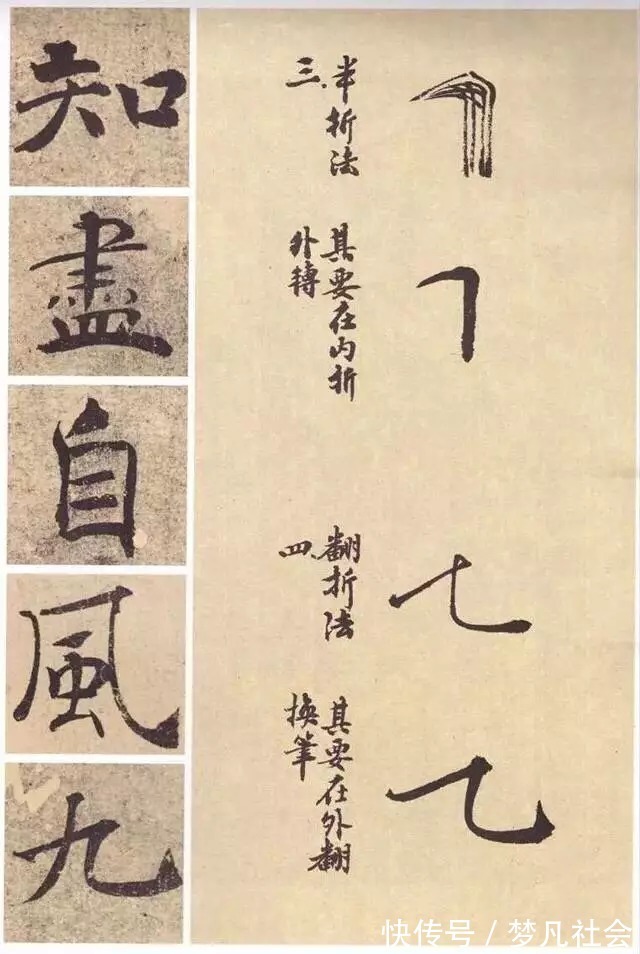 知
盡
自
風
九
三、半折法
其要在内折
外轉
四、翻折法
其要在外翻
換筆
快传号/梦凡社会